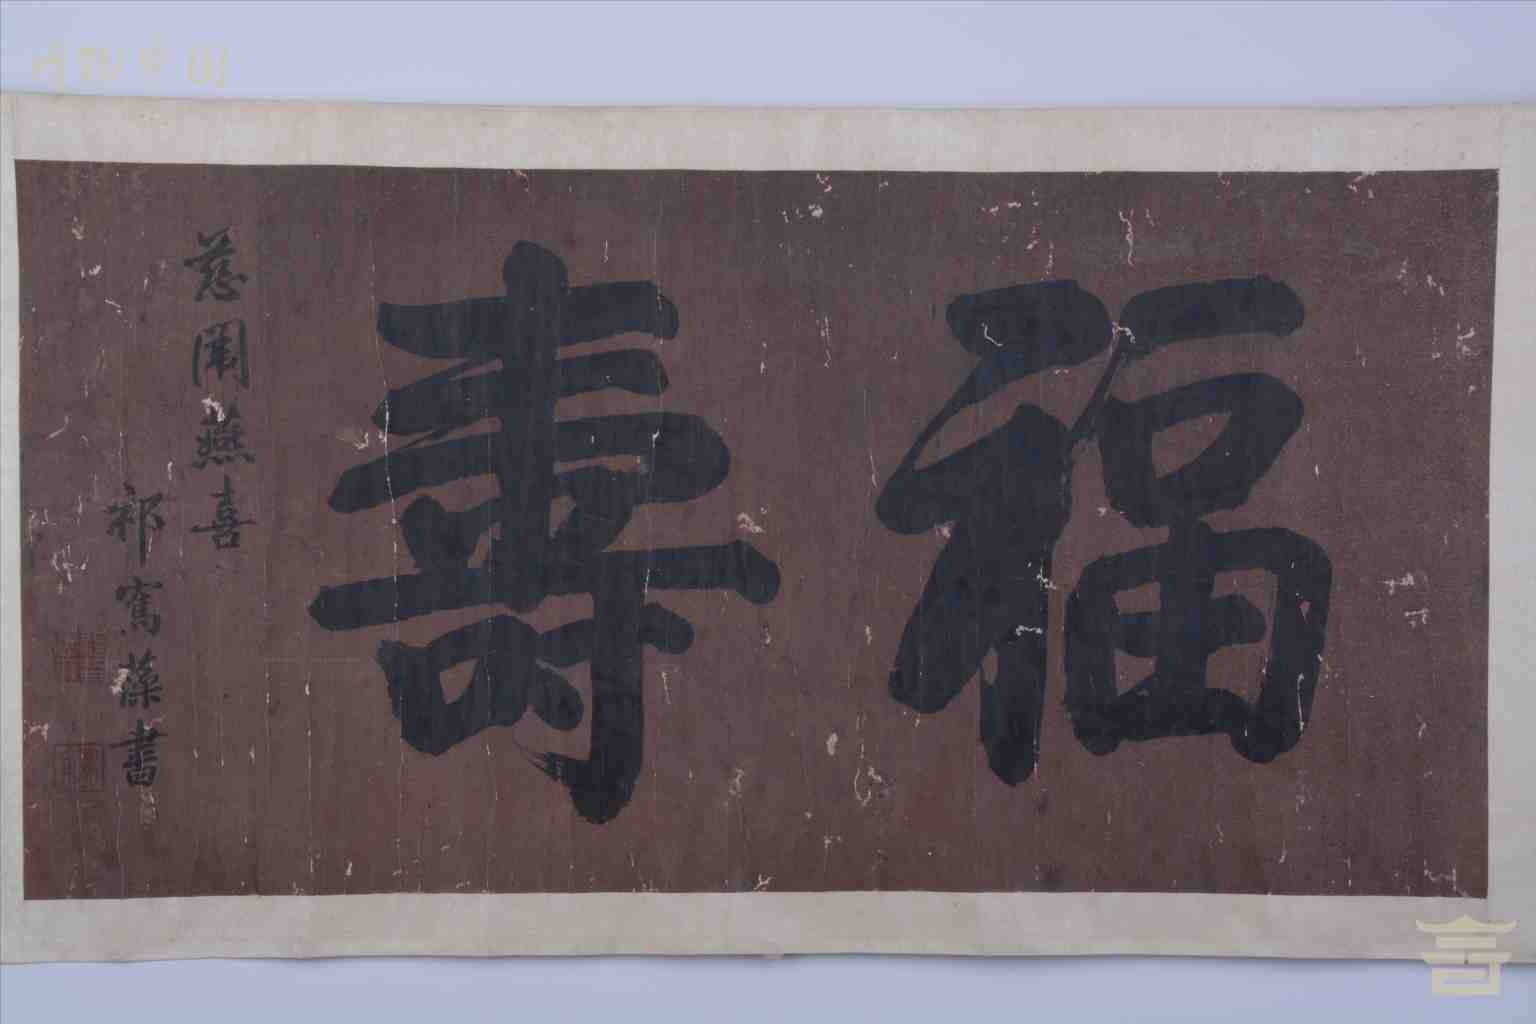 福壽
慈闈燕喜
祁寯藻書